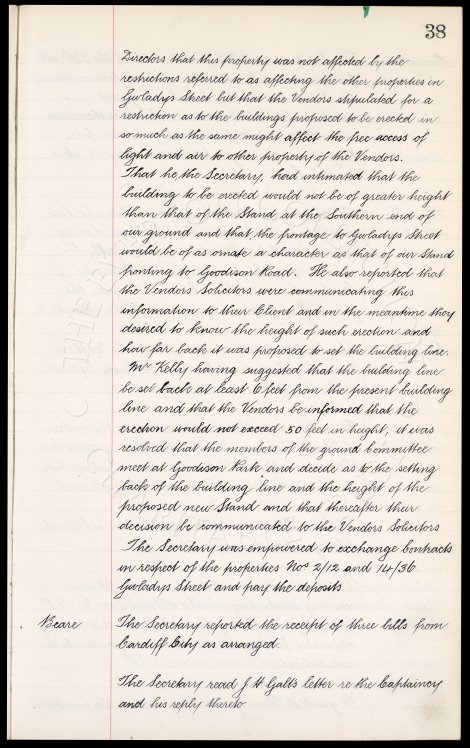 38
Directors that this property was not affected by the
restrictions referred to as affecting the other properties in
Gwladys Street but that the Vendors stipulated for a
restriction as to the buildings proposed to be erected in
so much as the same might affect the free access of
light and air to other property of the Vendors.
That he, the Secretary, had intimated that the
building to be erected would not be of greater height
than that of the Stand at the Southern end of
our ground and that the frontage to Gwladys Street
would be of as ornate a character as that of our Stand
fronting to Goodison Road. He also reported that
the Vendors Solicitors were communicating this
information to their Client and in the meantime they
desired to know the height of such erection and
how far back it was proposed to set the building line.
Mr Kelly having suggested that the building line
be set back at least 6 feet from the present building
line and that the Vendors be informed that the
erection would not exceed 50 feet in height, it was
resolved that the members of the ground Committee
meet at Goodison Park and decide as to the setting
back of the building line and the height of the
proposed new Stand and that thereafter their
decision be communicated to the Vendors Solicitors
The Secretary was empowered to exchange Contracts
in respect of the properties Nos 2/12 and 14/36
Gwladys Street and pay the deposits
Beare The Secretary reported the receipt of three bills from
Cardiff City as arranged.
The Secretary read J. H. Galt's letter re the Captaincy
and his reply thereto